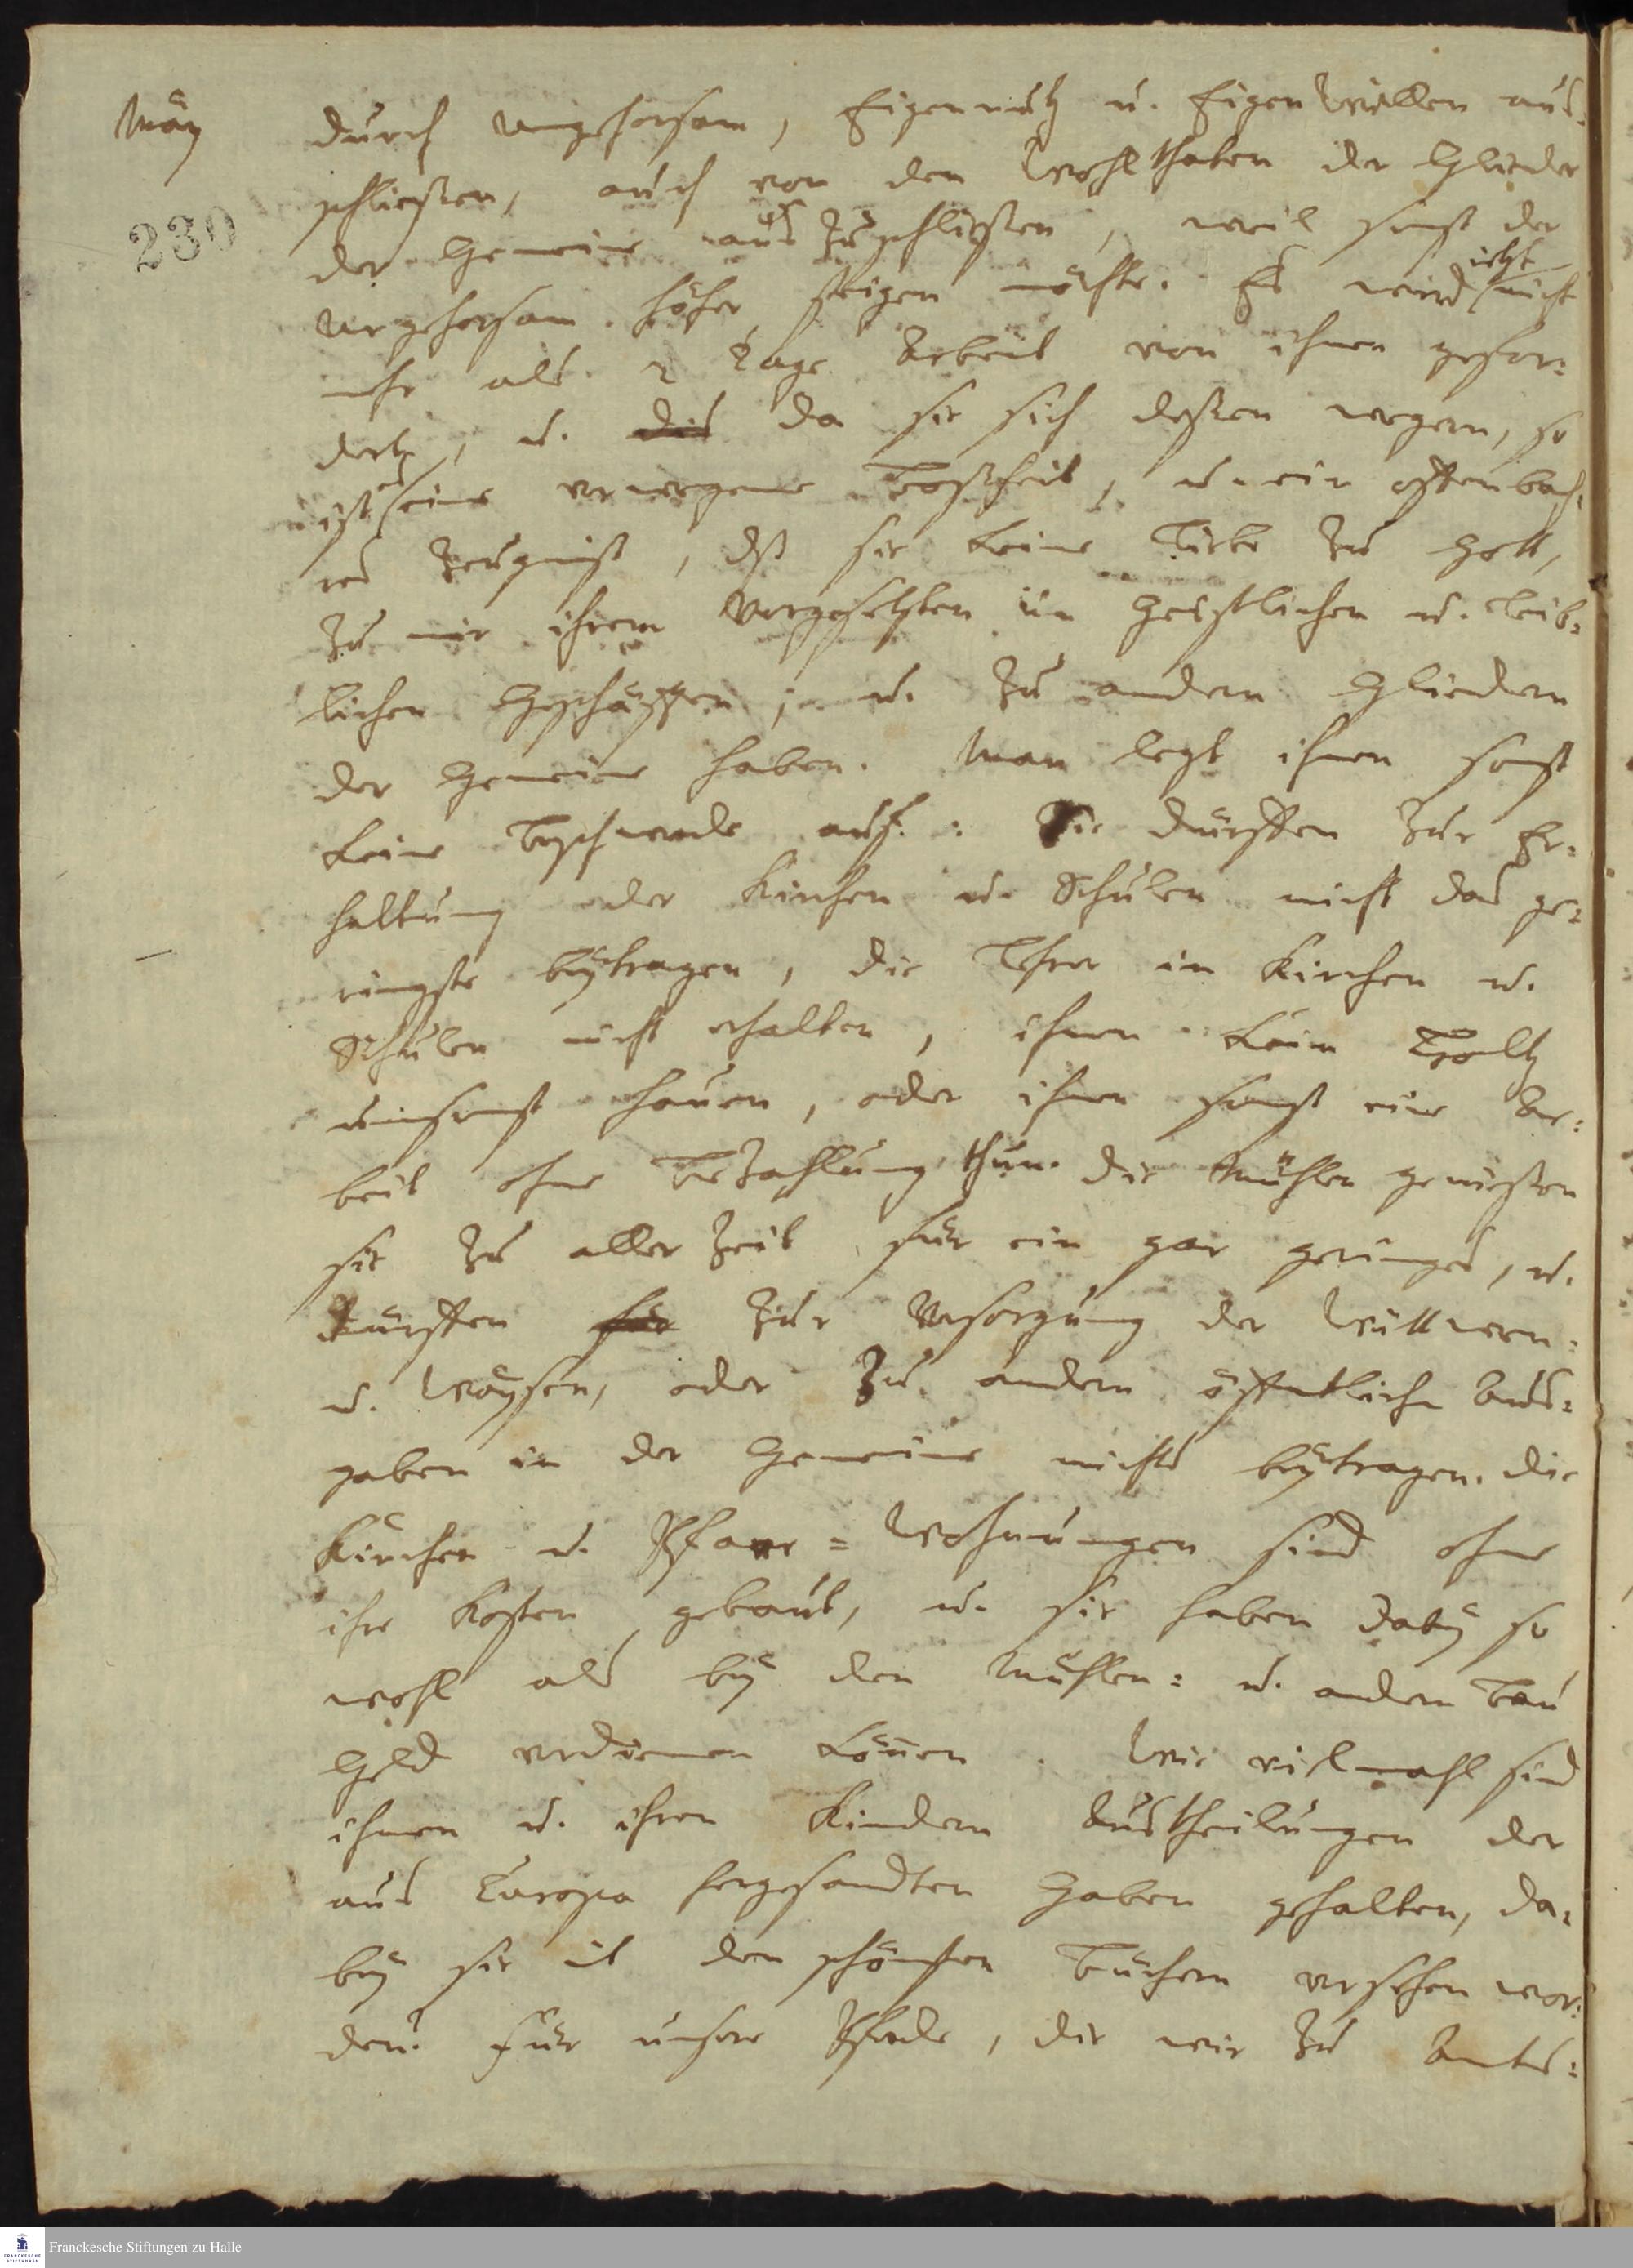 Mäy
230
durch ungehorsam, Eigennutz u. Eigen Willen aus-
schließen, auch von den Wohlthaten der Glieder
der Gemeine auszuschließen, weil sonst der
ungehorsam höher steigen möchte. Es wird nicht
ietzt
mehr als 2 Tage Arbeit von ihnen gefor:
dert, u. da sie sich deßen wegern, so
ist eine verwegene Boßheit, u. ein offenbah-
res Zeugniß, dß sie keine Liebe zu Gott,
zu mir ihrem Vorgesetzten in Geistlichen u. Leib:
lichen Geschäfften, u. zu andern Gliedern
der Gemeine haben. Man legt ihnen sonst
keine Beschwerde auf. Sie dürffen zur Er:
haltung der Kirchen u. Schulen nicht das ge:
ringste beytragen, die Lehrer in Kirchen u.
Schulen nicht erhalten, ihnen kein Holtz
umsonst hauen, oder ihnen sonst eine Ar:
beit ohne Bezahlung thun. Die Mühlen genießen
sie zu aller Zeit für ein gar geringes, u.
dürffen für zur Versorgung der Wittwen:
u. Waysen, oder zu andern öffentliche Aus:
gaben in der Gemeine nichts beytragen. Die
Kirchen u. Pfarr= Wohnungen sind ohne
ihre Kosten gebaut, u. sie haben dabey so
wohl als bey den Mühlen: u. andern Bau
Geld verdienen können. Wie vielmahl sind
ihnen u. ihren Kindern Austheilungen der
aus Europa hergesandten Gaben gehalten, da:
bey sie mit den schönsten Büchern versehen wor:
den. Für unsere Pferde, die wir zu Amts:
Franckesche Stiftungen zu Halle